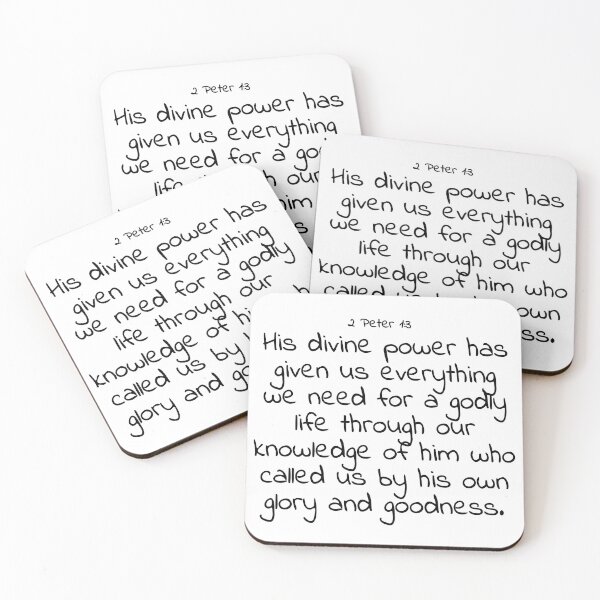 2 Peter 13
His divine power has
given us everything
we need for a
our
2 Peter 13
His divine power has
given us everything
we need for a godly
life through our
knowledge of him who
own
2 Peter 13
His divine power has
given us everything
we need for a godly
life through our
knowledge of
called us by
glory and
2 Peter 13
His divine power has
given us everything
we need for a godly
life through our
knowledge of him who
called us by his own
glory and goodness.